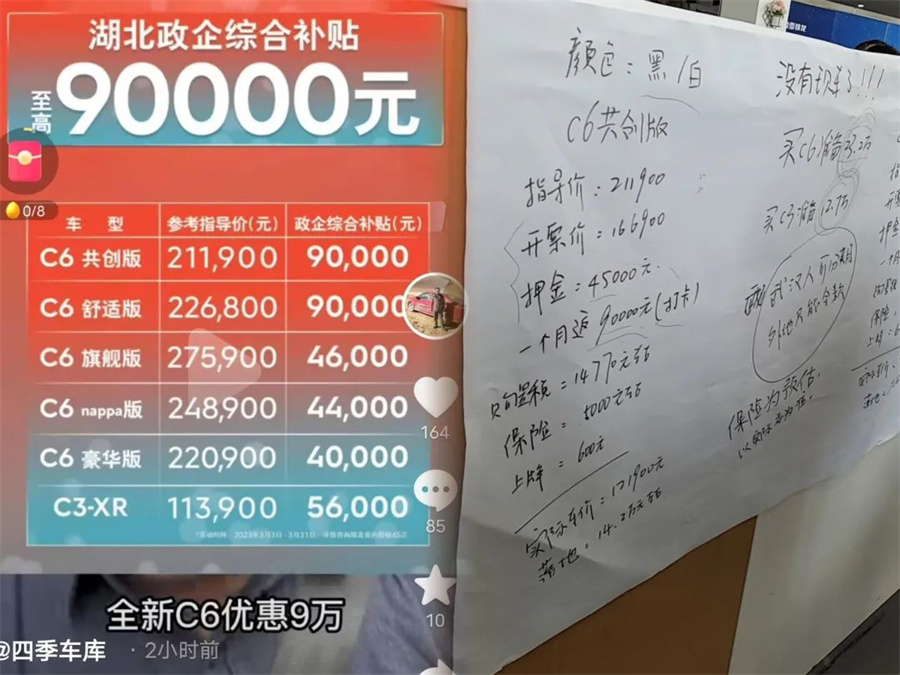 湖北政企综合补贴
至高90000元
0/8
车 型 参考指导价(元) 政企综合补贴(元)
C6 共创版 211,900 90,000
C6 舒适版 226,800 90,000
C6 旗舰版 275,900 46,000
C6 nappa版 248,900 44,000
C6 豪华版 220,900 40,000
C3-XR 113,900 56,000
164
85
10
全新C6优惠9万
@四季车库 · 2小时前
颜色：黑/白
C6共创版
指导价：211900
开票价：166900
押金：45000元
一个月返90000元(打卡)
购置税=14770元左右
保险=5000元左右
上牌=600元
实际车价：121900元
落地：14.2万元左右
没有现车了!!!
买C6准备23.2万
买C3准备12.7万
武汉人可以分期
外地只能全款
保险为预估，
以实际为准。